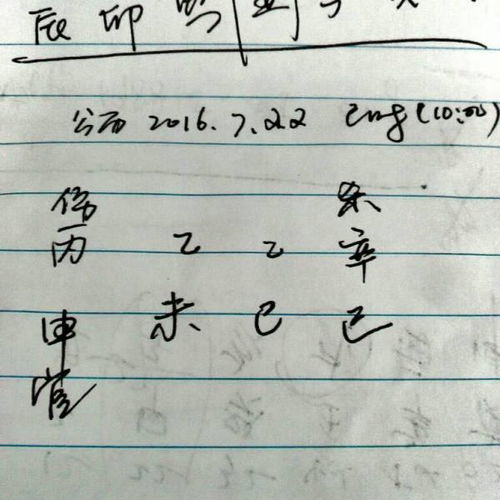 辰 卯
公历 2016.7.22 巳时(10:00)
伤 杀
丙 乙 乙 辛
申 未 巳 巳
官